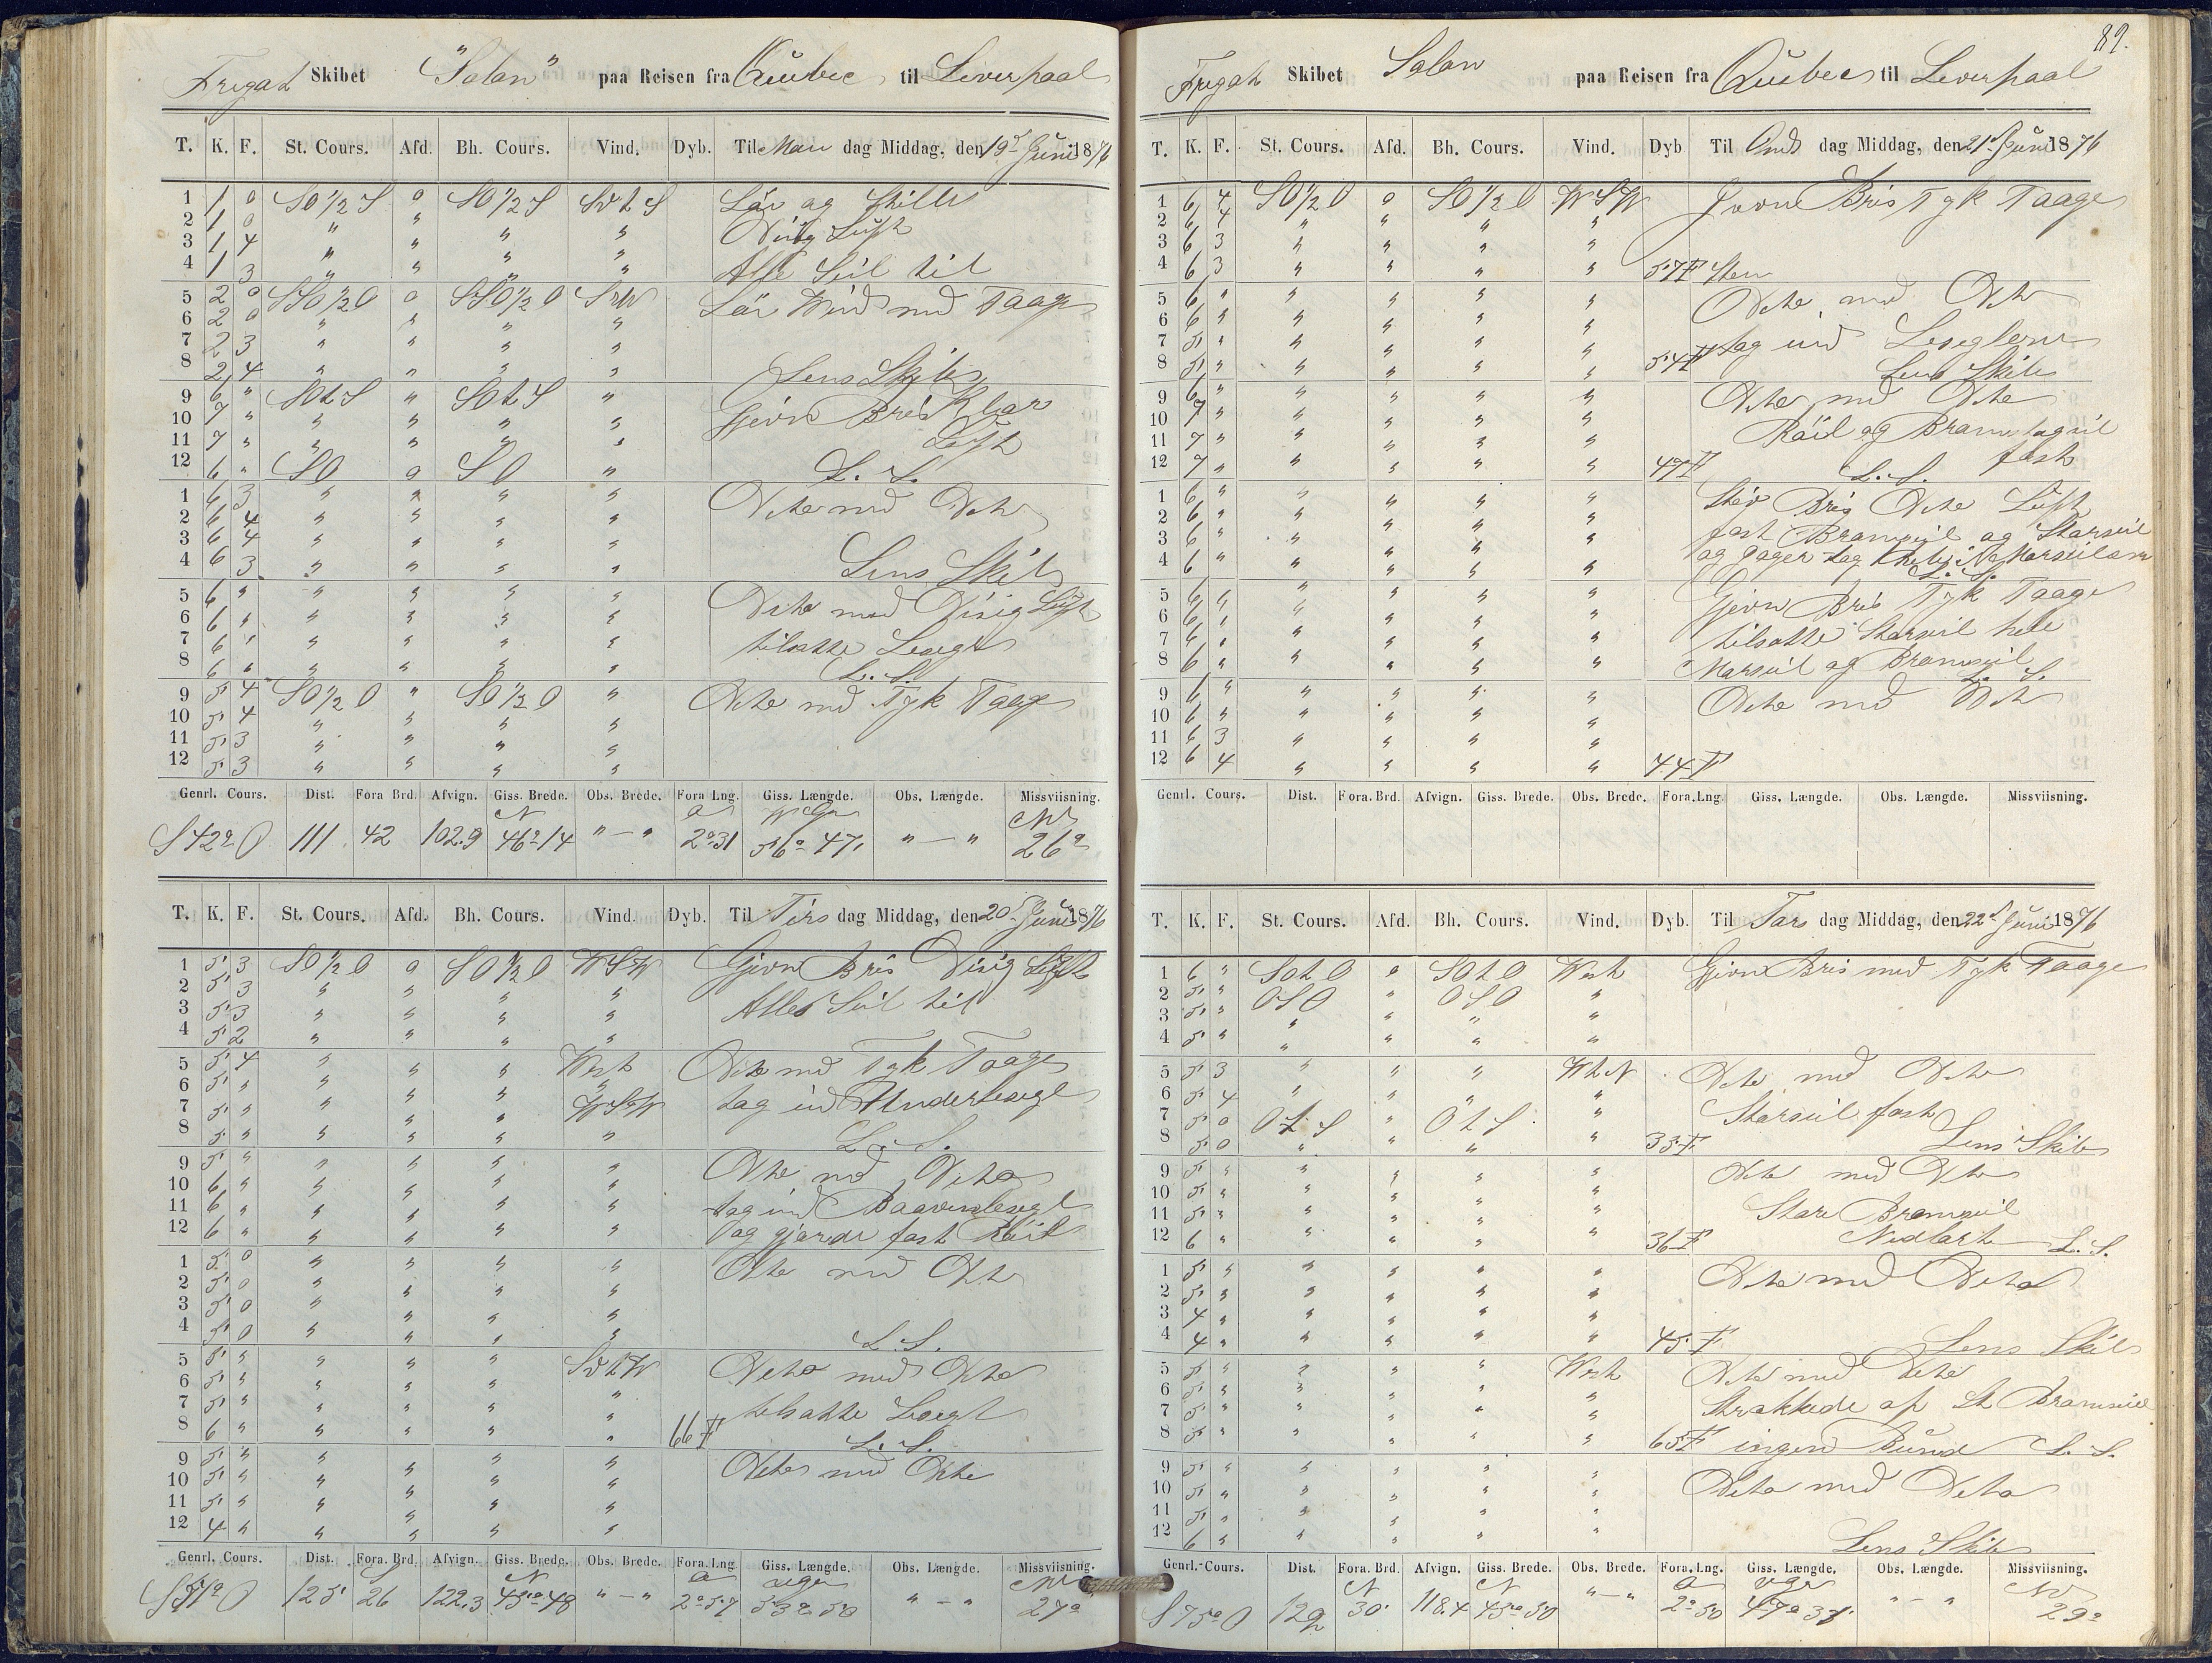 Fregat Skibet "Salan" paa Reisen fra Quebec til Liverpaal
T. K. F. St. Cours. Afd. Bh. Cours. Vind. Dyb. Til Man dag Middag, den 19d Juni 1876
1 1 0 SO ½ S 0 SO ½ S SvtS Lär og Stille
2 1 0 " " " " Disig Luft
3 1 4 " " " "
4 1 3 " " " " Alle Seil til
5 2 0 SSO ½ O 0 SSO ½ O SvW Lär Wind med Taage
6 2 0 " " " "
7 2 3 " " " "
8 2 4 " " " " Lens Skib
9 6 " SOtS " SOtS "
10 7 " " " " " Gjevn Bris Klar
11 7 " " " " " Luft
12 6 " SO 0 SO " L. S.
1 6 3 " " " " Dito med Dito
2 6 4 " " " "
3 6 4 " " " "
4 6 3 " " " " Lens Skib
5 6 " " " " " Dito med Disig Luft
6 6 " " " " "
7 6 " " " " " tilsatte Lesegl
8 6 " " " " " L. S.
9 5 4 SO ½ O " SO ½ O " Dito med Tyk Taage
10 5 4 " " " "
11 5 3 " " " "
12 5 3 " " " "
Genrl. Cours. Dist. Fora Brd. Afvign. Giss. Brede. Obs. Brede. Fora Lng. Giss. Længde. Obs. Længde. Missviisning.
S 42° O 111 42 102.9 N 46° 14 " — " O 2° 31 W Gr 56° 47 " — " NW 26°
T. K. F. St. Cours. Afd. Bh. Cours. Vind. Dyb. Til Tirs dag Middag, den 20d Juni 1876
1 5 3 SO ½ O 0 SO ½ O WSW Gjevn Bris Disig Luft
2 5 3 " " " "
3 5 3 " " " " Alle Seil til
4 5 2 " " " "
5 5 4 " " " West Dito med Tyk Taage
6 5 " " " " "
7 5 " " " " WSW tag ind Underlesegl
8 5 " " " " " L. S.
9 5 " " " " " Dito med Dito
10 6 " " " " "
11 6 " " " " " tag ind Baavenlesegl
12 6 " " " " " og gjorde fast Röil
1 5 0 " " " " Dito med Dito
2 5 0 " " " "
3 5 0 " " " "
4 5 0 " " " " L. S.
5 5 " " " " SvtW Dito med Dito
6 5 " " " " "
7 5 " " " " " tilsatte Lesegl
8 6 " " " " " 66 F L. S.
9 5 " " " " " Dito med Dito
10 5 " " " " "
11 5 " " " " "
12 4 " " " " "
Genrl. Cours. Dist. Fora. Brd. Afvign. Giss. Brede. Obs. Brede. Fora. Lng Giss. Længde. Obs. Længde. Missviisning.
S 51° O 125 S 26 122.3 N 45° 48 " — " O 2° 57 v gr 53° 50 " — " NW 27°
89.
Fregat Skibet Salan paa Reisen fra Quebec til Liverpaal
T. K. F. St. Cours. Afd. Bh. Cours. Vind. Dyb Til Ons dag Middag, den 21d Juni 1876
1 6 4 SO ½ O 0 SO ½ O WSW Jevne Bris Tyk Taage
2 6 4 " " " "
3 6 3 " " " "
4 6 3 " " " " 57 F Sten
5 6 " " " " " Dito med Dito
6 6 " " " " "
7 5 " " " " " tag ind Leseglene
8 5 " " " " " 54 F Lens Skib
9 6 " " " " " Dito med Dito
10 7 " " " " " Röil og Bramstagseil
11 7 " " " " " fast
12 7 " " " " " 47 F L. S.
1 6 " " " " " Stiv Bris Dito Luft
2 6 " " " " " fast Bramseil og Storseil
3 6 " " " " " og Jager tag i Marseilerne
4 6 " " " " " L. S.
5 6 " " " " " Gjevn Bris Tyk Taage
6 6 " " " " "
7 6 " " " " " tilsatte Storseil hele
8 6 " " " " " Marseil og Bramseil L. S.
9 6 " " " " " Dito med Dito
10 6 " " " " "
11 6 3 " " " "
12 6 4 " " " " 44 F
Genrl. Cours. Dist. Fora. Brd. Afvign. Giss. Brede. Obs. Brede. Fora. Lng. Giss. Længde. Obs. Længde. Missviisning.
T. K. F. St. Cours. Afd. Bh. Cours. Vind. Dyb. Til Tors dag Middag, den 22d Juni 1876
1 6 " SOtO 0 SOtO West Gjevn Bris med Tyk Taage
2 5 " OSO " OSO "
3 5 " " " " "
4 5 " " " " "
5 5 3 " " " WtN Dito med Dito
6 5 4 " " " "
7 5 0 OtS " OtS " Storseil fast
8 5 0 " " " " 33 F Lens Skib
9 5 " " " " " Dito med Dito
10 5 " " " " "
11 5 " " " " " Store Bramseil
12 6 " " " " " 36 F Nedlast L. S.
1 5 " " " " " Dito med Dito
2 5 " " " " "
3 4 " " " " "
4 4 " " " " " 45 F Lens Skib
5 5 " " " " West Dito med Dito
6 5 " " " " "
7 5 " " " " " Strakkede af St Bramseil
8 5 " " " " " 65 F ingen Bund L. S.
9 5 " " " " " Dito med Dito
10 5 " " " " "
11 5 " " " " "
12 6 " " " " " Lens Skib
Genrl. Cours. Dist. Fora. Brd. Afvign. Giss. Brede. Obs. Brede. Fora. Lng. Giss. Længde. Obs. Længde. Missviisning.
S 75° O 122 N 30 118.4 N 45° 50 " — " O 2° 50 v gr 47° 38 " — " NW 29°